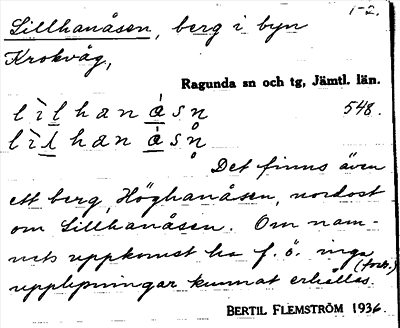 1-2.
Lillhanåsen, berg i byn
Krokvåg,
Ragunda sn och tg, Jämtl. län.
lìlhanàsn 548.
lìlhanàsn̥
Det finns även
ett berg, Höghanåsen, nordost
om Lillhanåsen. Om nam-
nets uppkomst ha f. ö. inga
(tork.)
upplysningar kunnat erhållas.
BERTIL FLEMSTRÖM 1936.